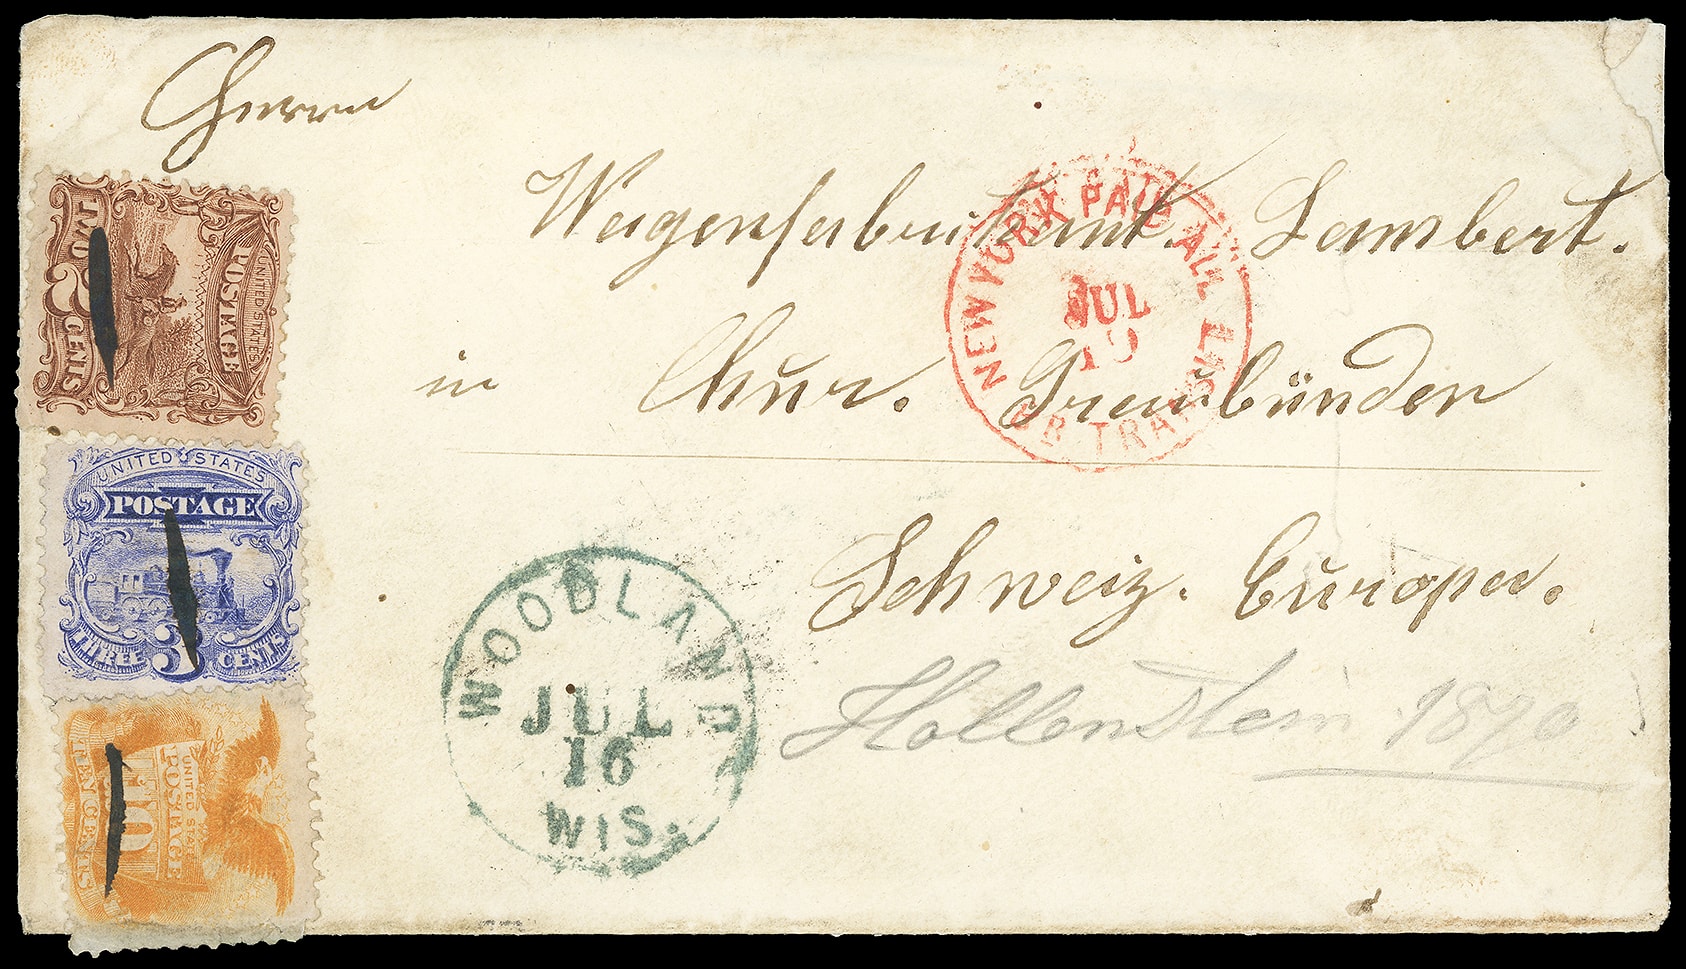 Herrn
Wagenfabrikant Lambert.
in Chur. Graubünden
Schweiz. Europa.
Hollenstein 1870
NEW YORK PAID ALL
JUL
19
BR TRANSIT
WOODLAND
JUL
16
WIS.
UNITED STATES
POSTAGE
TWO 2 CENTS
UNITED STATES
POSTAGE
THREE 3 CENTS
UNITED STATES
POSTAGE
10
TEN CENTS